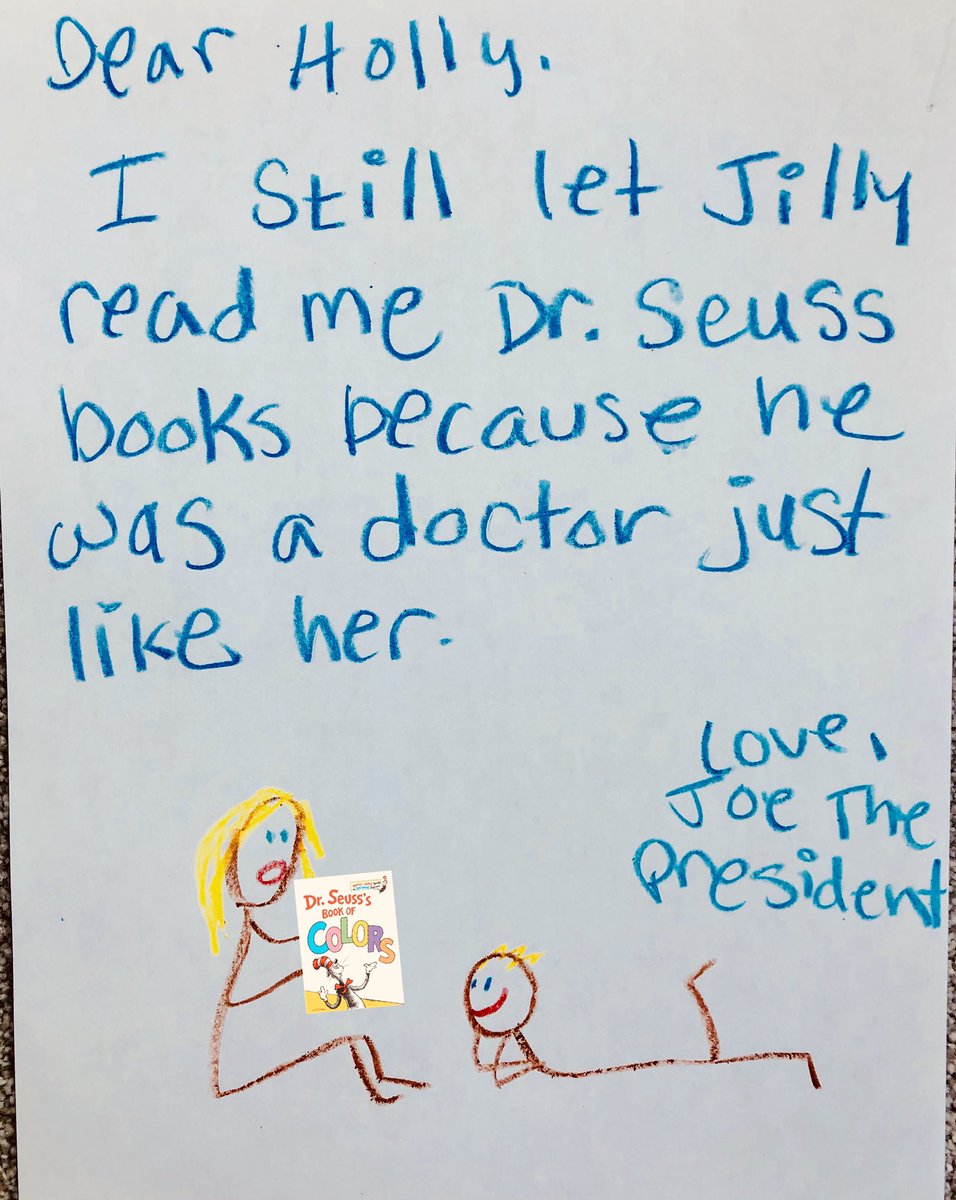 Dear Holly.
I Still let Jilly
read me Dr. Seuss
books because he
was a doctor just
like her.
Love,
Joe The
President
Dr. Seuss's
BOOK OF
COLORS